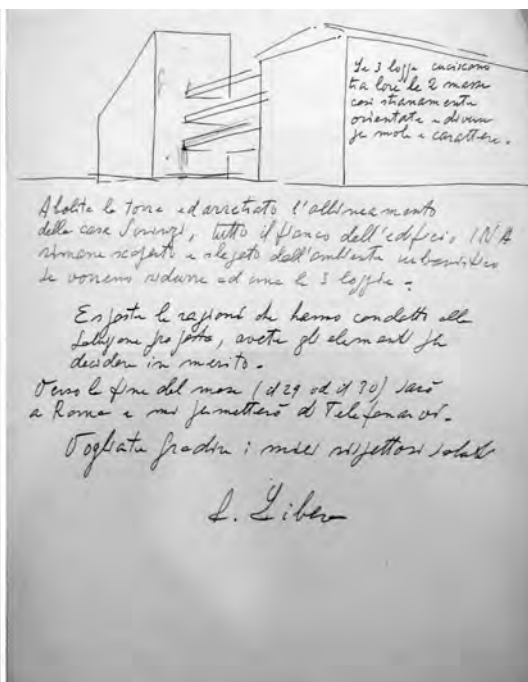 Le 3 logge cuciscono
tra loro le 2 masse
così stranamente
orientate e diverse
per mole e carattere.
Abolita la torre ed arretrato l'allineamento
della casa, tutto il fianco dell'edificio INA
rimane scoperto e slegato dall'ambiente urbanistico
se vorremo ridurre ad una le 3 loggie.
Esposte le ragioni che hanno condotto alla
soluzione, avete gli elementi per
decidere in merito.
Verso la fine del mese (il 29 od il 30) sarò
a Roma e mi permetterò di Telefonarvi.
Vogliate gradire i miei rispettosi saluti
A. Libera